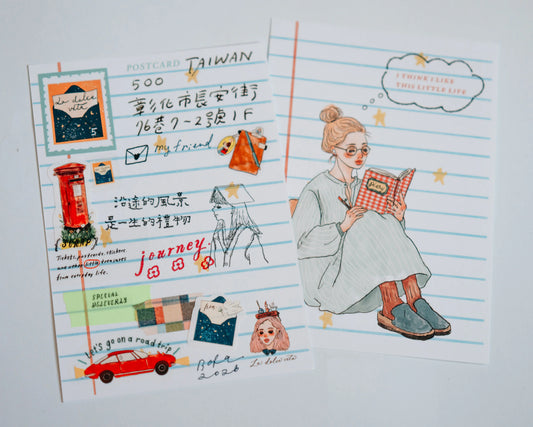 POSTCARD
TAIWAN
500
彰化市長安街
76巷7-2號1F
La dolce vita
5
my friend
沿途的風景
是一生的禮物
journey
Tickets, postcards, stickers
and other little treasures
from everyday life.
SPECIAL
DELIVERY
Let's go on a road trip!
2026
La dolce vita
I THINK I LIKE
THIS LITTLE LIFE